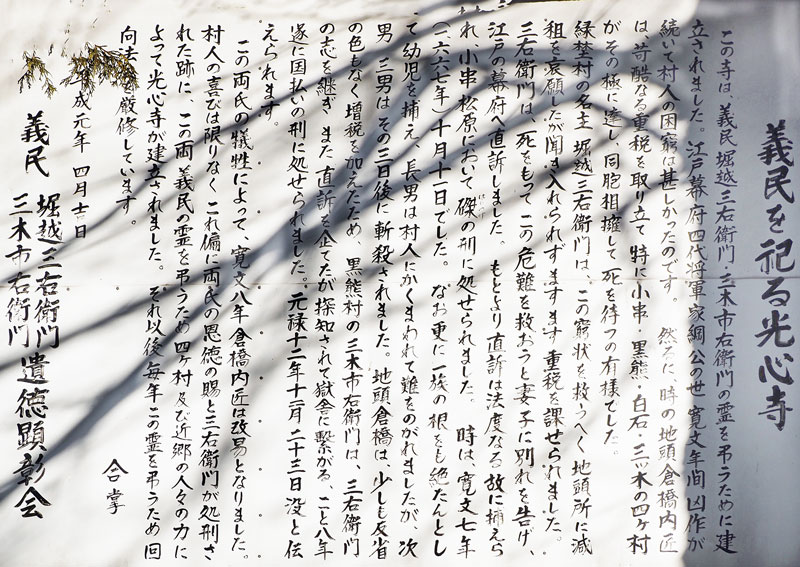 義民を祀る光心寺
この寺は、義民堀越三右衛門・三木市右衛門の霊を弔うために建
立されました。江戸幕府四代将軍家綱公の世 寛文年間 凶作が
続いて村人の困窮は甚しかったのです。 然るに、時の地頭倉橋内匠
は、苛酷なる重税を取り立て 特に小串・黒熊・白石・三ッ木の四ヶ村
がその極に達し、同胞相擁して死を待つの有様でした。
緑埜村の名主 堀越三右衛門は、この窮状を救うべく地頭所に減
租を哀願したが聞き入れられず ますます重税を課せられました。
三右衛門は、死をもってこの危難を救おうと妻子に別れを告げ、
江戸の幕府へ直訴しました。 もとより直訴は法度なる故に捕えら
れ、小串松原において磔の刑に処せられました。 時は寛文七年
(一六六七年)十月十一日でした。 なお更に一族の根をも絶たんとし
て幼児を捕え、長男は村人にかくまわれて難をのがれましたが、次
男 三男は その三日後に斬殺されました。地頭倉橋は 少しも反省
の色もなく増税を加えたため、黒熊村の三木市右衛門は、三右衛門
の志を継ぎ また直訴を企てたが探知されて獄舎に繋がる こと八年
遂に国払いの刑に処せられました。元禄十二年十一月 二十三日没と伝
えられます。
この両氏の犠牲によって、寛文八年 倉橋内匠は改易となりました。
村人の喜びは限りなく これ偏に両氏の恩徳の賜と三右衛門が処刑さ
れた跡に、この両義民の霊を弔うため四ヶ村及び近郷の人々の力に
よって光心寺が建立されました。 それ以後毎年この霊を弔うため回
向法を厳修しています。
合掌
平成元年 四月十一日
義民 堀越三右衛門
三木市右衛門 遺徳顕彰会